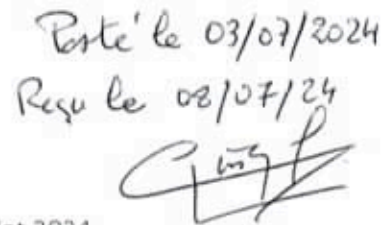 Posté le 03/07/2024
Reçu le 08/07/24
2024